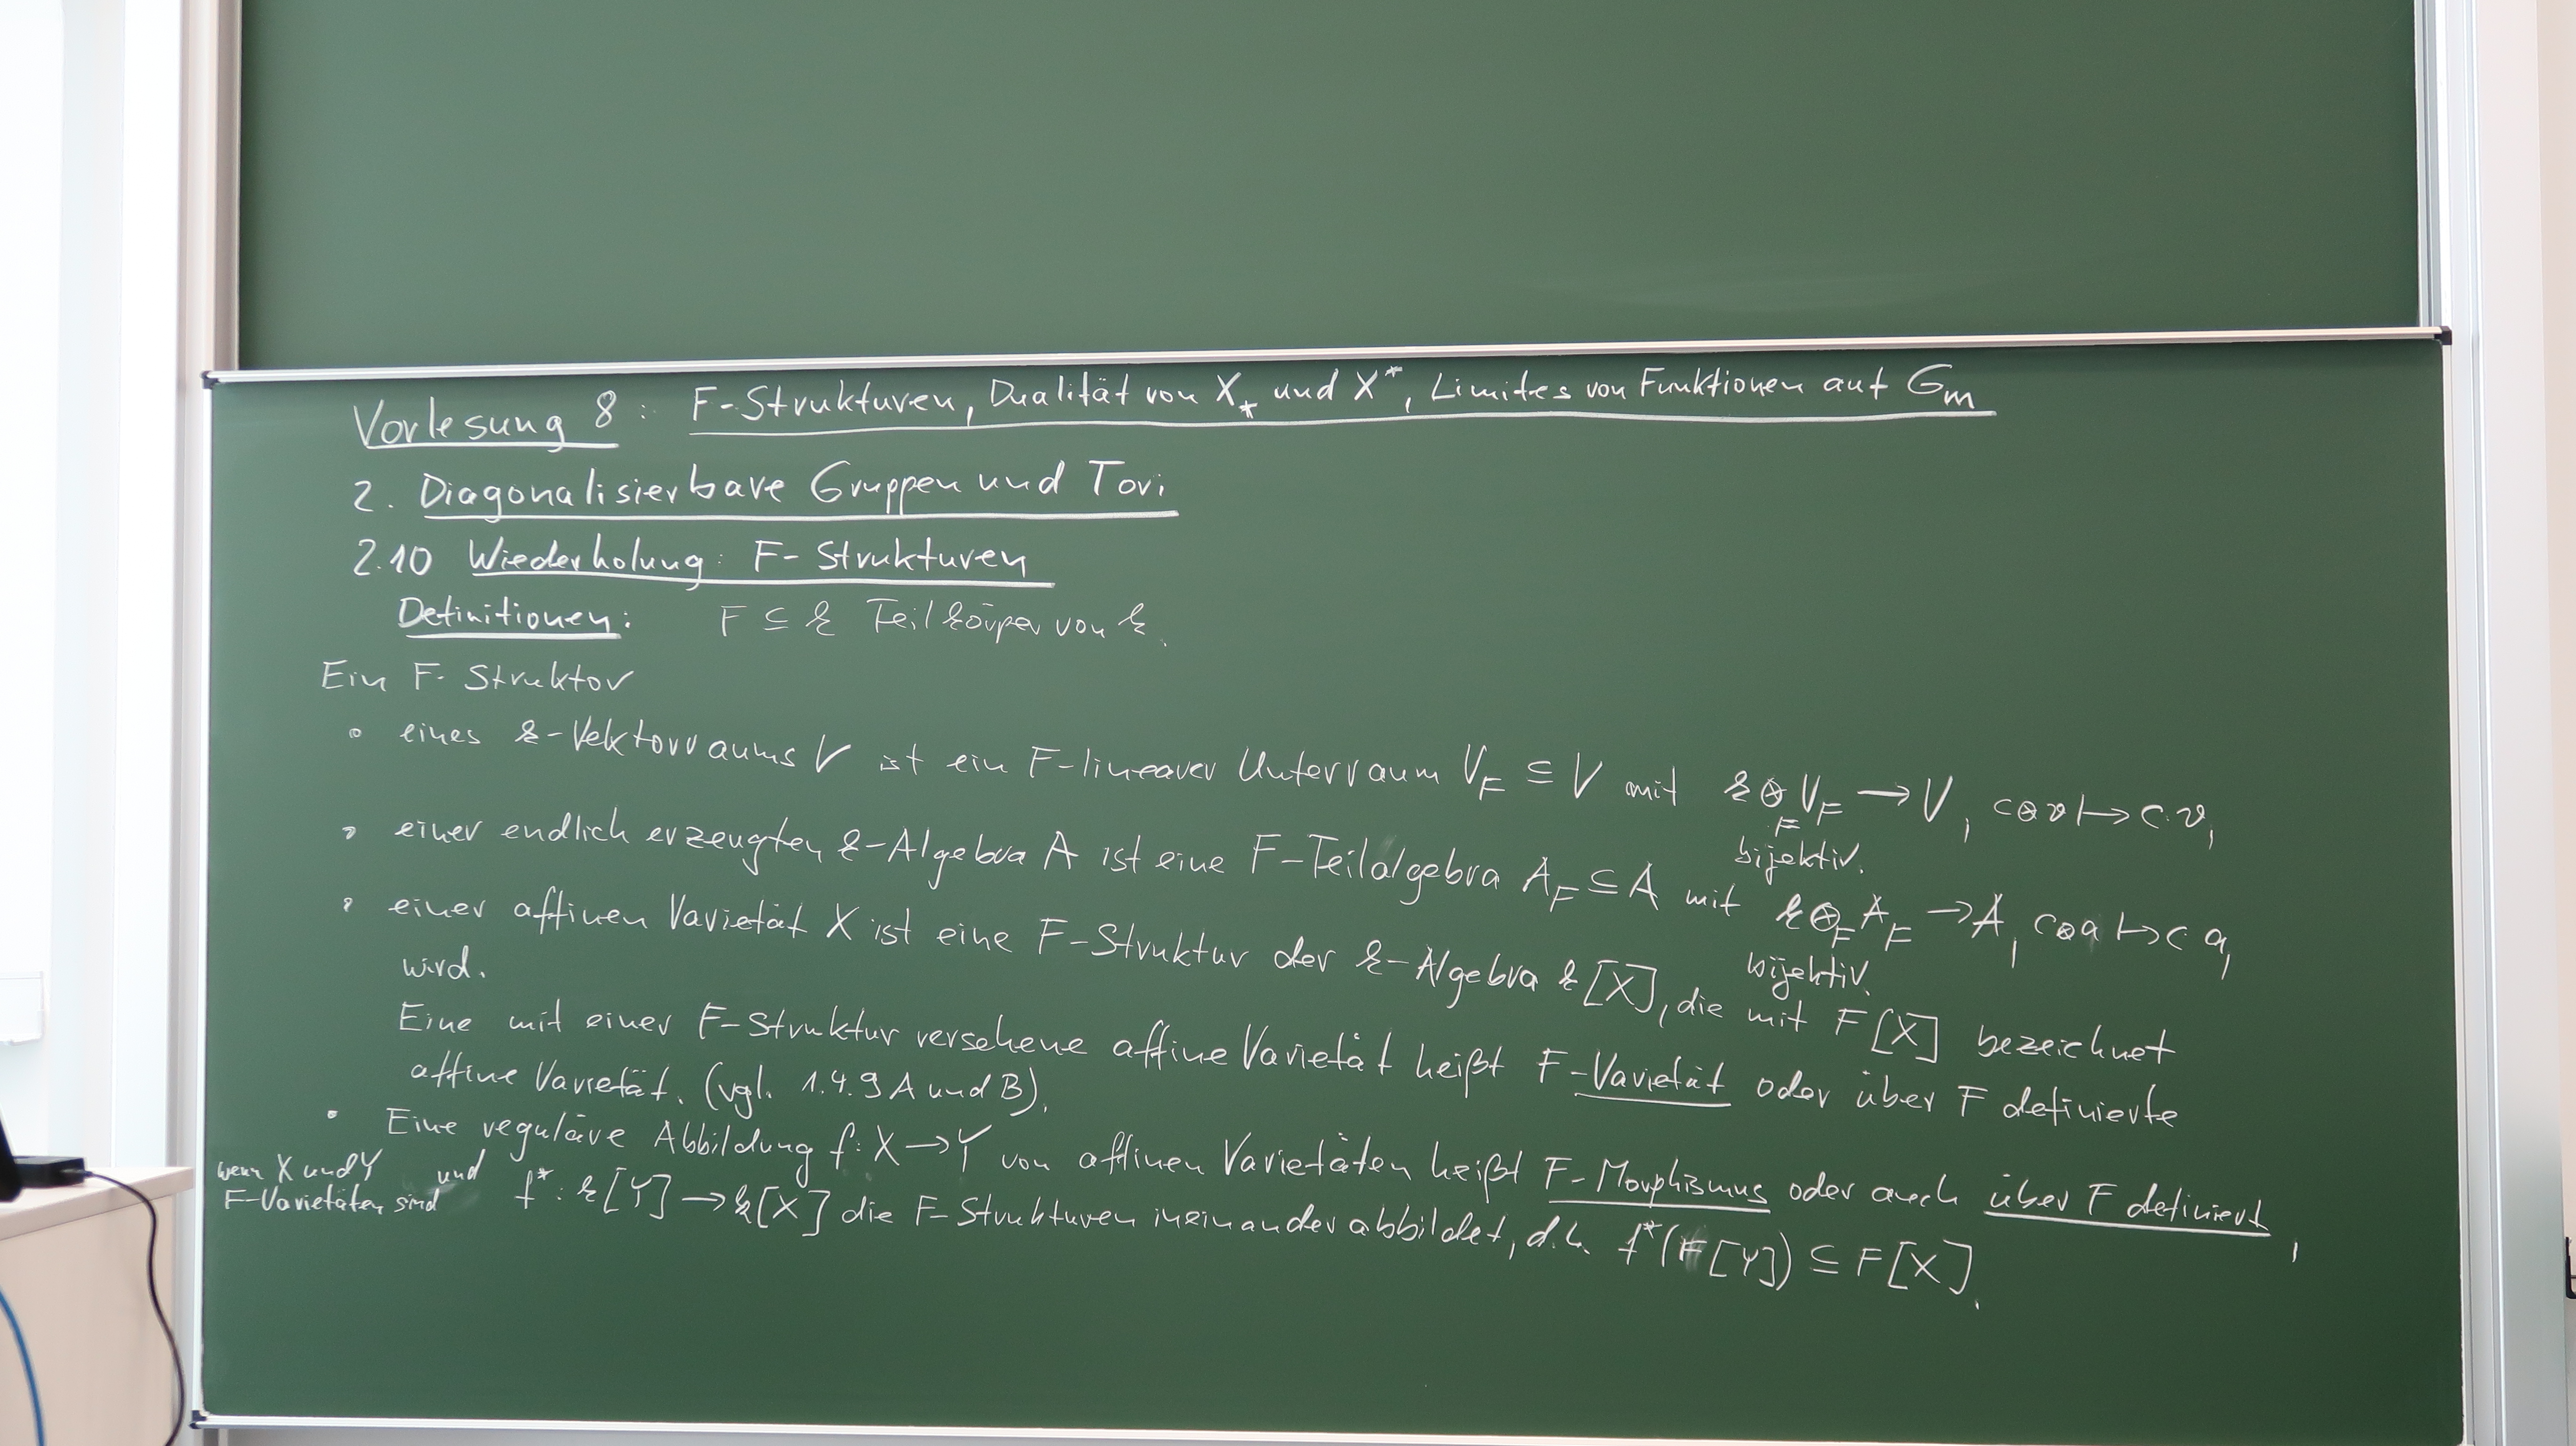 Vorlesung 8: F-Strukturen, Dualität von X_* und X^*, Limites von Funktionen auf G_m
2. Diagonalisierbare Gruppen und Tori
2.10 Wiederholung: F-Strukturen
Definitionen: F ⊆ k Teilkörper von k.
Ein F-Struktor
• eines k-Vektorraums V ist ein F-linearer Unterraum V_F ⊆ V mit k ⊗_F V_F → V, c⊗v ↦ c·v,
bijektiv.
• einer endlich erzeugten k-Algebra A ist eine F-Teilalgebra A_F ⊆ A mit k ⊗_F A_F → A, c⊗a ↦ c·a,
bijektiv.
• einer affinen Varietät X ist eine F-Struktur der k-Algebra k[X], die mit F[X] bezeichnet
wird.
Eine mit einer F-Struktur versehene affine Varietät heißt F-Varietät oder über F definierte
affine Varietät. (vgl. 1.4.9 A und B).
• Eine reguläre Abbildung f: X → Y von affinen Varietäten heißt F-Morphismus oder auch über F definiert,
wenn X und Y
F-Varietäten sind
und f^*: k[Y] → k[X] die F-Strukturen ineinander abbildet, d.h. f^*(F[Y]) ⊆ F[X].